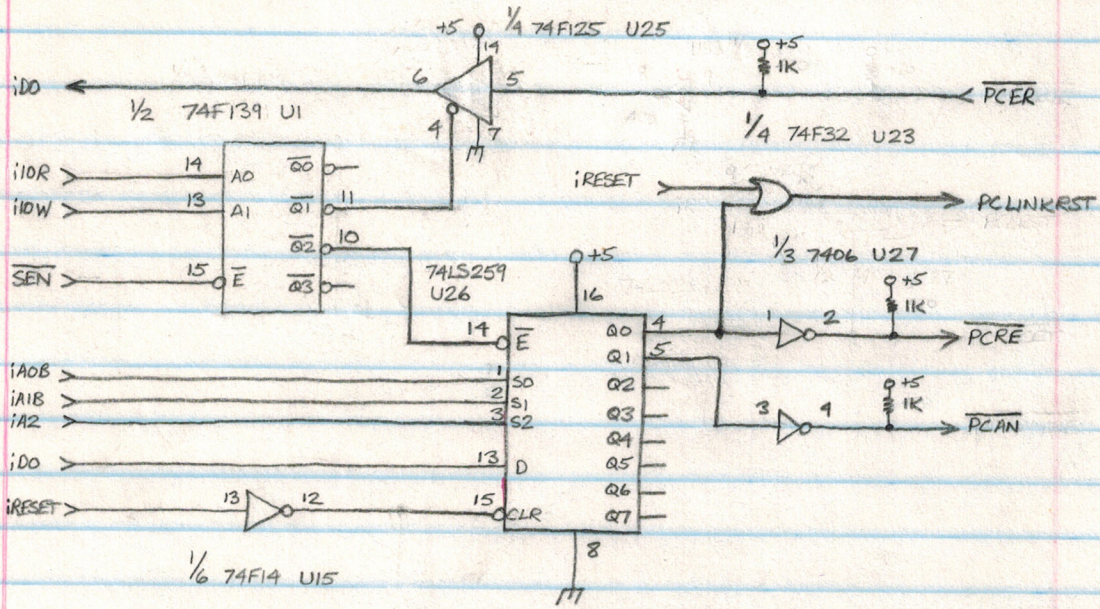 +5 1/4 74F125 U25
14
+5
iD0 6 5 1K P̅C̅E̅R̅
1/2 74F139 U1 4 7 1/4 74F32 U23
iIOR 14 A0 Q̅0̅
iRESET
iIOW 13 A1 Q̅1̅ 11 PCLINKRST
Q̅2̅ 10
S̅E̅N̅ 15 E̅ Q̅3̅ 74LS259 +5 1/3 7406 U27
U26 16 +5
1K
14 E̅ Q0 4 1 2 P̅C̅R̅E̅
Q1 5
iA0B 1 S0 Q2 +5
iA1B 2 S1 Q3 1K
iA2 3 S2 Q4 3 4 P̅C̅A̅N̅
iD0 13 D Q5
Q6
iRESET 13 12 15 CLR Q7
8
1/6 74F14 U15